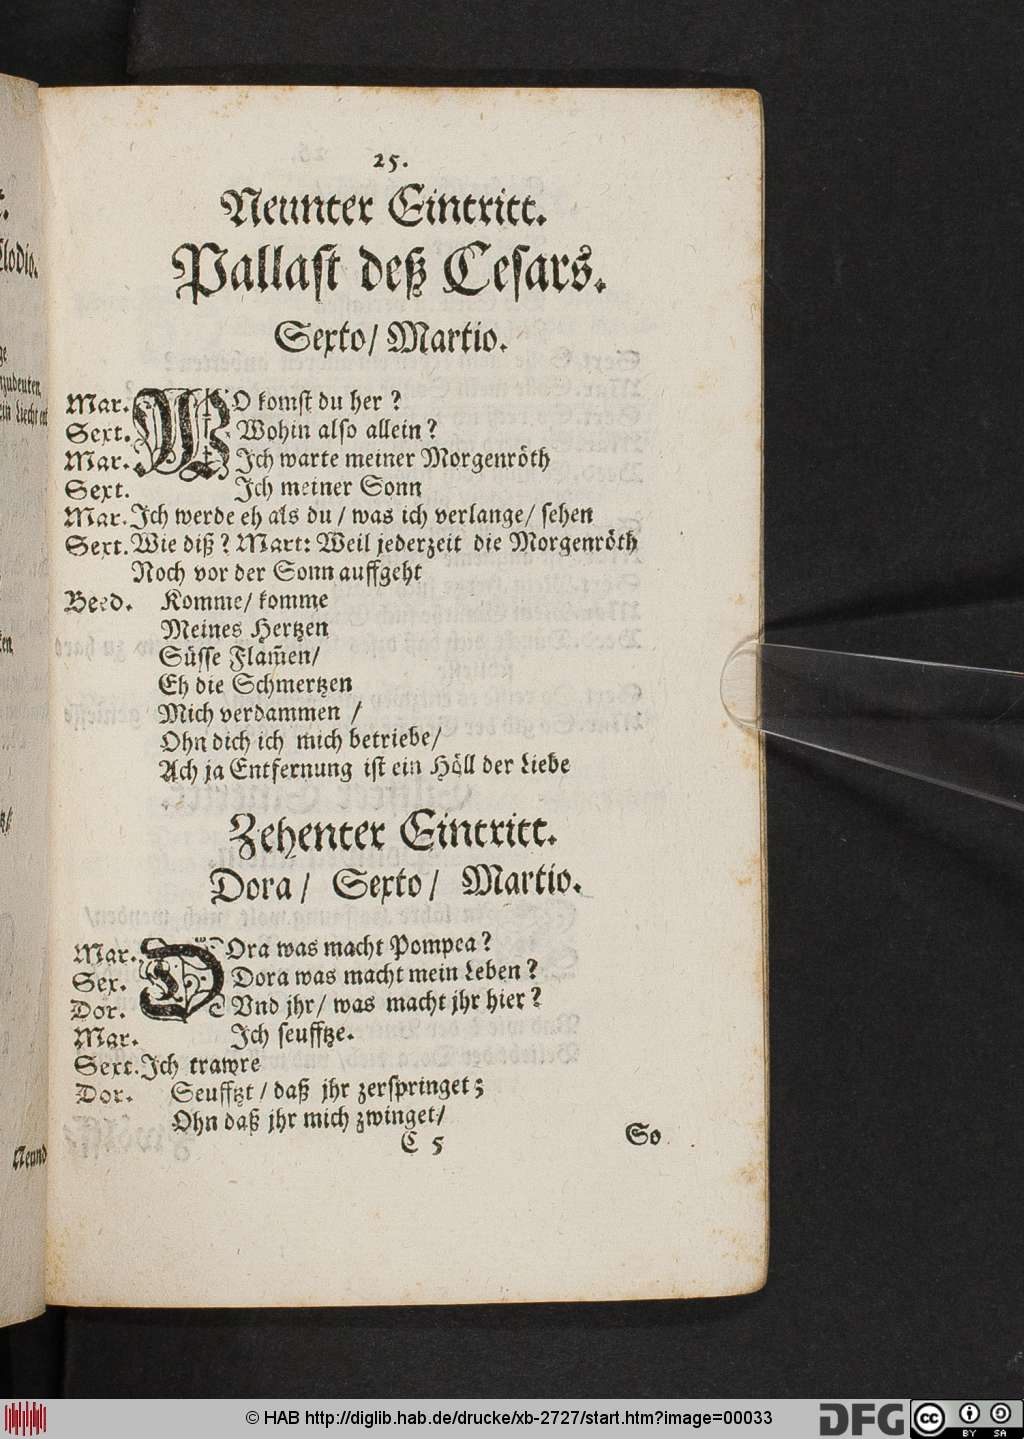 25.
Neunter Eintritt.
Pallast deß Cesars.
Sexto/ Martio.
Mar. WO komst du her ?
Sext. Wohin also allein ?
Mar. Ich warte meiner Morgenröth
Sext. Ich meiner Sonn
Mar. Ich werde eh als du / was ich verlange/ sehen
Sext. Wie diß ? Mart: Weil jederzeit die Morgenröth
Noch vor der Sonn auffgeht
Beed. Komme/ komme
Meines Hertzen
Süsse Flam̃en/
Eh die Schmertzen
Mich verdammen /
Ohn dich ich mich betriebe/
Ach ja Entfernung ist ein Höll der Liebe
Zehenter Eintritt.
Dora / Sexto / Martio.
Mar. DOra was macht Pompea ?
Sex. Dora was macht mein Leben ?
Dor. Vnd jhr/ was macht jhr hier ?
Mar. Ich seufftze.
Sext. Ich trawre
Dor. Seufftzt / daß jhr zerspringet;
Ohn daß jhr mich zwinget/
C 5 So
lodio.
zudeuten.
ein Liecht
Neund
© HAB http://diglib.hab.de/drucke/xb-2727/start.htm?image=00033
DFG
cc BY SA